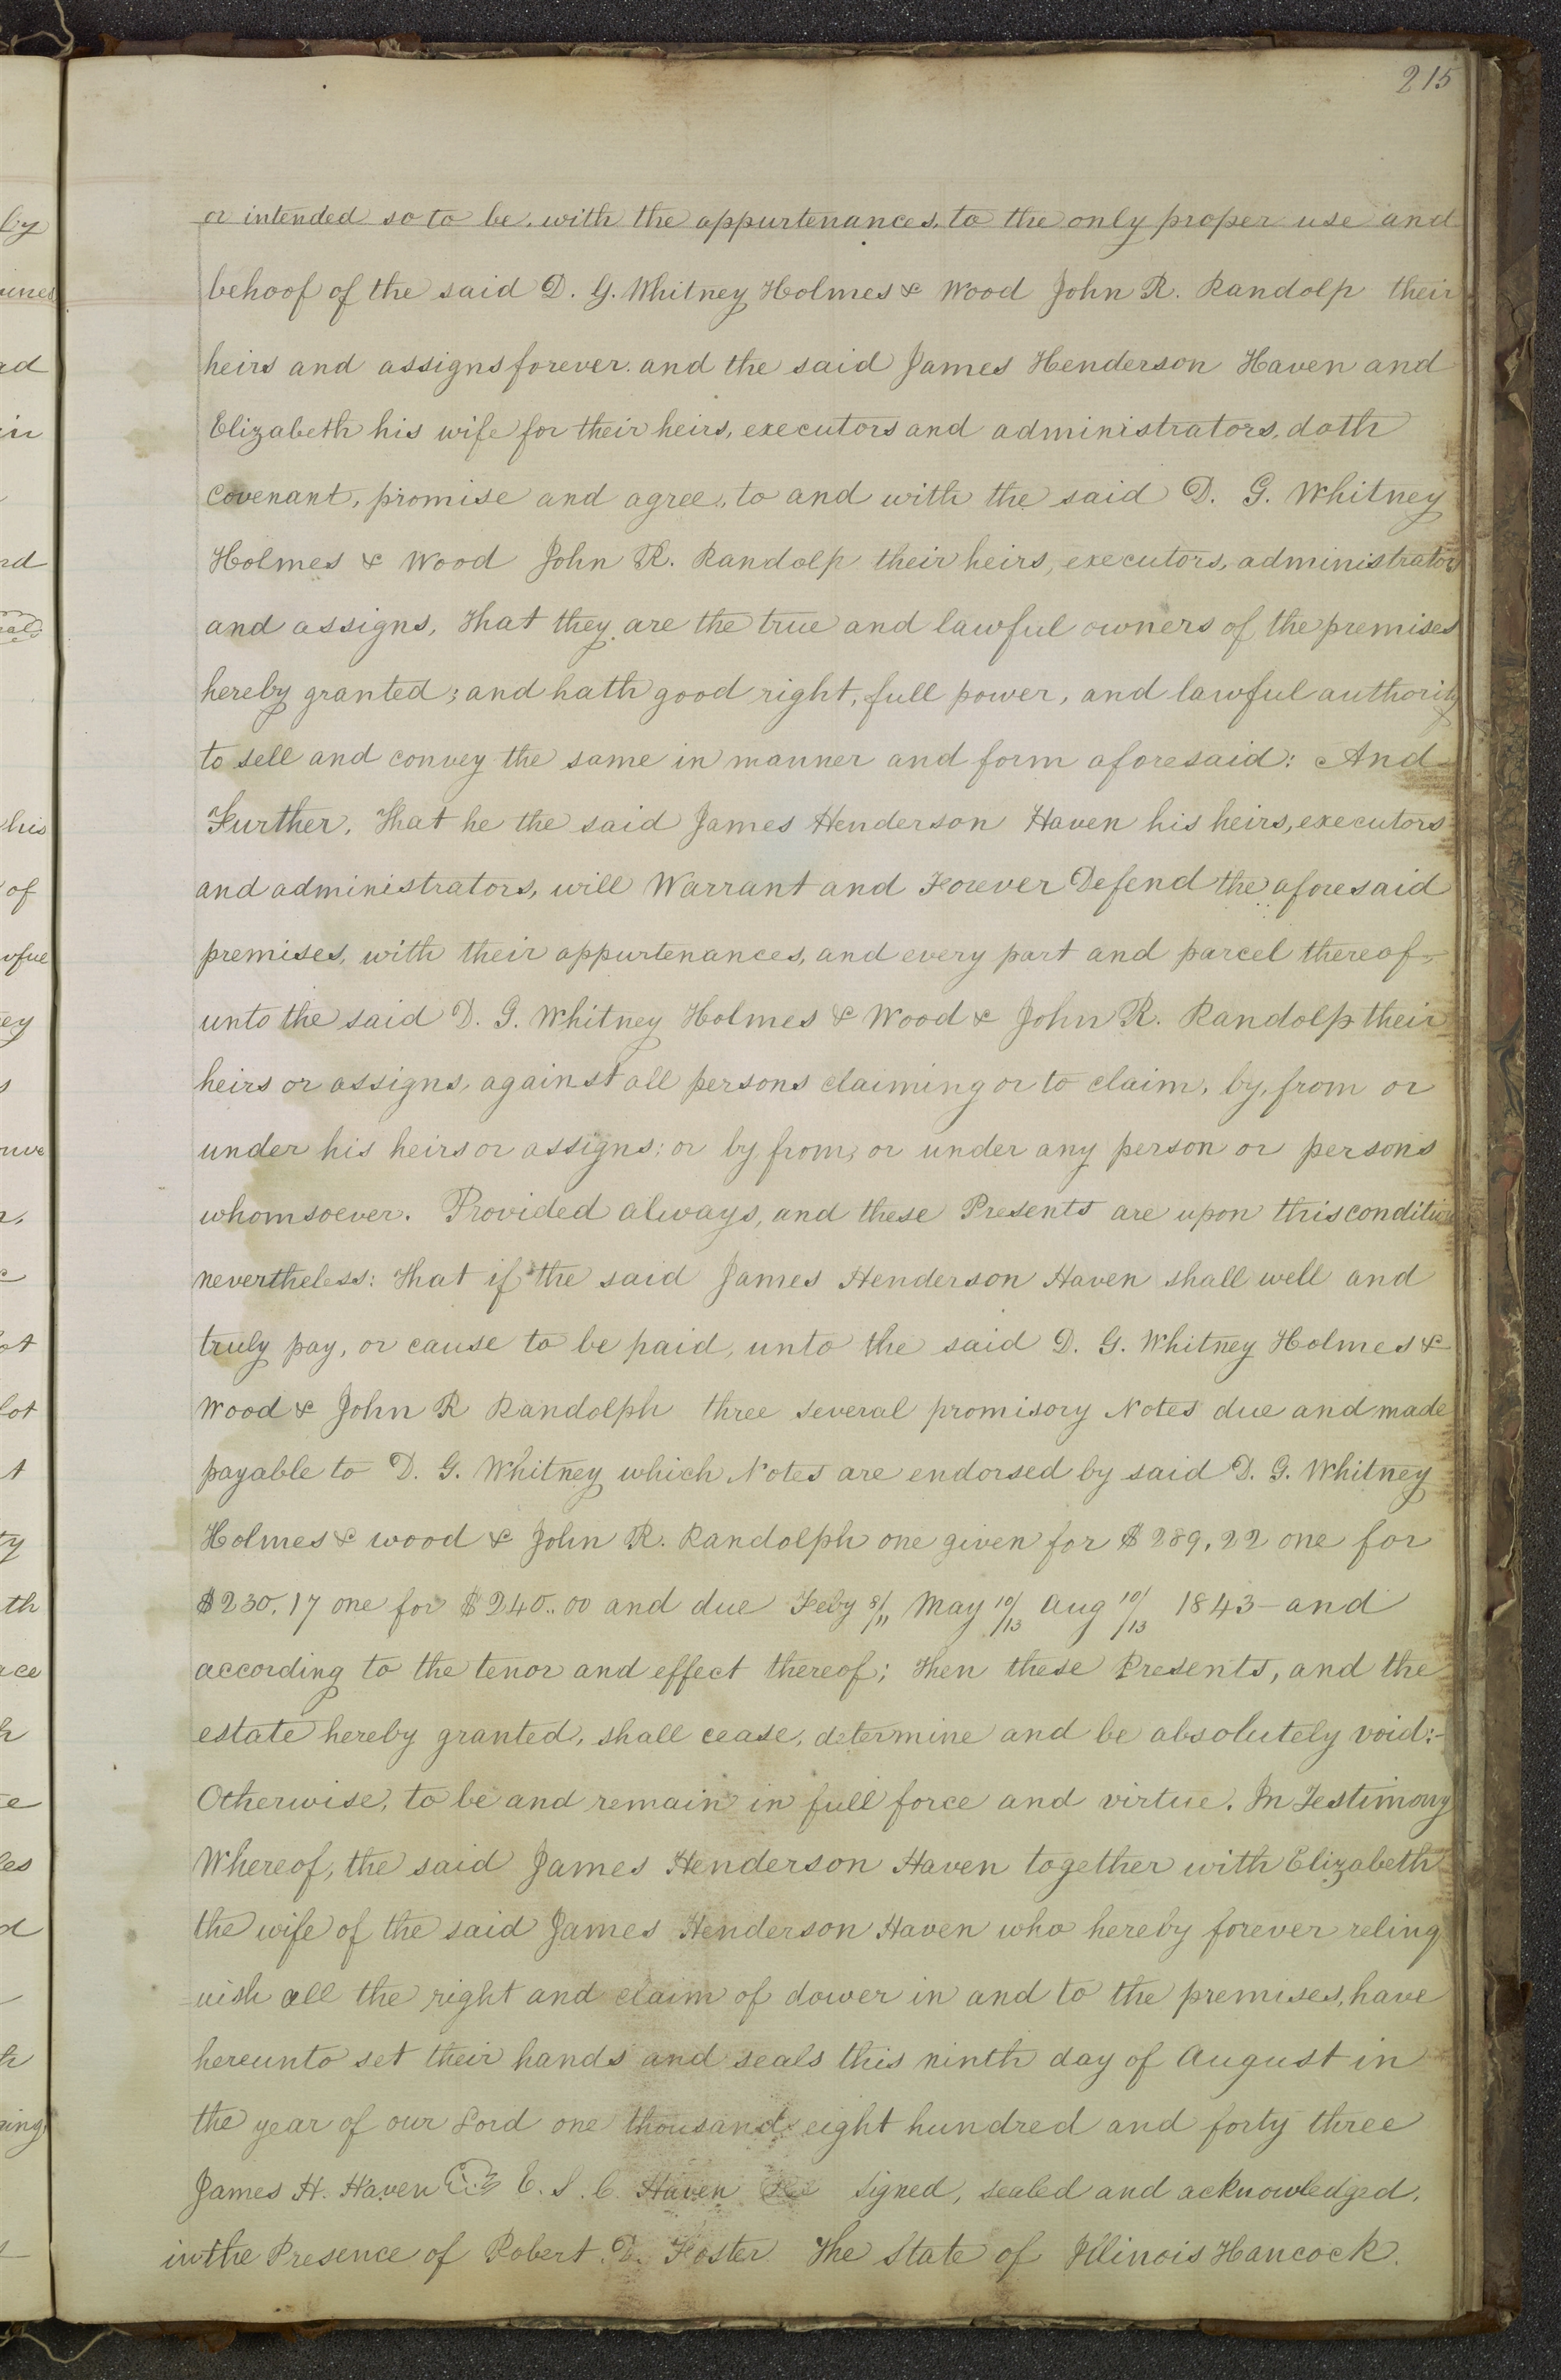 215
or intended so to be, with the appurtenances, to the only proper use and
behoof of the said D. G. Whitney Holmes & Wood John R. Randolp their
heirs and assigns forever. and the said James Henderson Haven and
Elizabeth his wife for their heirs, executors and administrators, doth
covenant, promise and agree, to and with the said D. G. Whitney
Holmes & Wood John R. Randolp their heirs, executors, administrators
and assigns, That they are the true and lawful owners of the premises
hereby granted; and hath good right, full power, and lawful authority
to sell and convey the same in manner and form aforesaid: And
Further, That he the said James Henderson Haven his heirs, executors
and administrators, will Warrant and Forever Defend the aforesaid
premises, with their appurtenances, and every part and parcel thereof,
unto the said D. G. Whitney Holmes & Wood & John R. Randolp their
heirs or assigns, against all persons claiming or to claim, by, from or
under his heirs or assigns: or by, from, or under any person or persons
whomsoever. Provided always, and these Presents are upon this condition
nevertheless: That if the said James Henderson Haven shall well and
truly pay, or cause to be paid, unto the said D. G. Whitney Holmes &
Wood & John R Randolph three several promisory Notes due and made
payable to D. G. Whitney which Notes are endorsed by said D. G. Whitney
Holmes & wood & John R. Randolph one given for $289,22 one for
$230,17 one for $240..00 and due Feby 8/11 May 10/13 Aug 10/13 1843 - and
according to the tenor and effect thereof; Then these Presents, and the
estate hereby granted, shall cease, determine and be absolutely void:-
Otherwise, to be and remain in full force and virtue. In Testimony
Whereof, the said James Henderson Haven together with Elizabeth
the wife of the said James Henderson Haven who hereby forever relinq
uish all the right and claim of dower in and to the premises, have
hereunto set their hands and seals this ninth day of August in
the year of our Lord one thousand eight hundred and forty three
James H. Haven E. S. C. Haven Signed, sealed and acknowledged,
in the Presence of Robert D. Foster The State of Illinois Hancock.